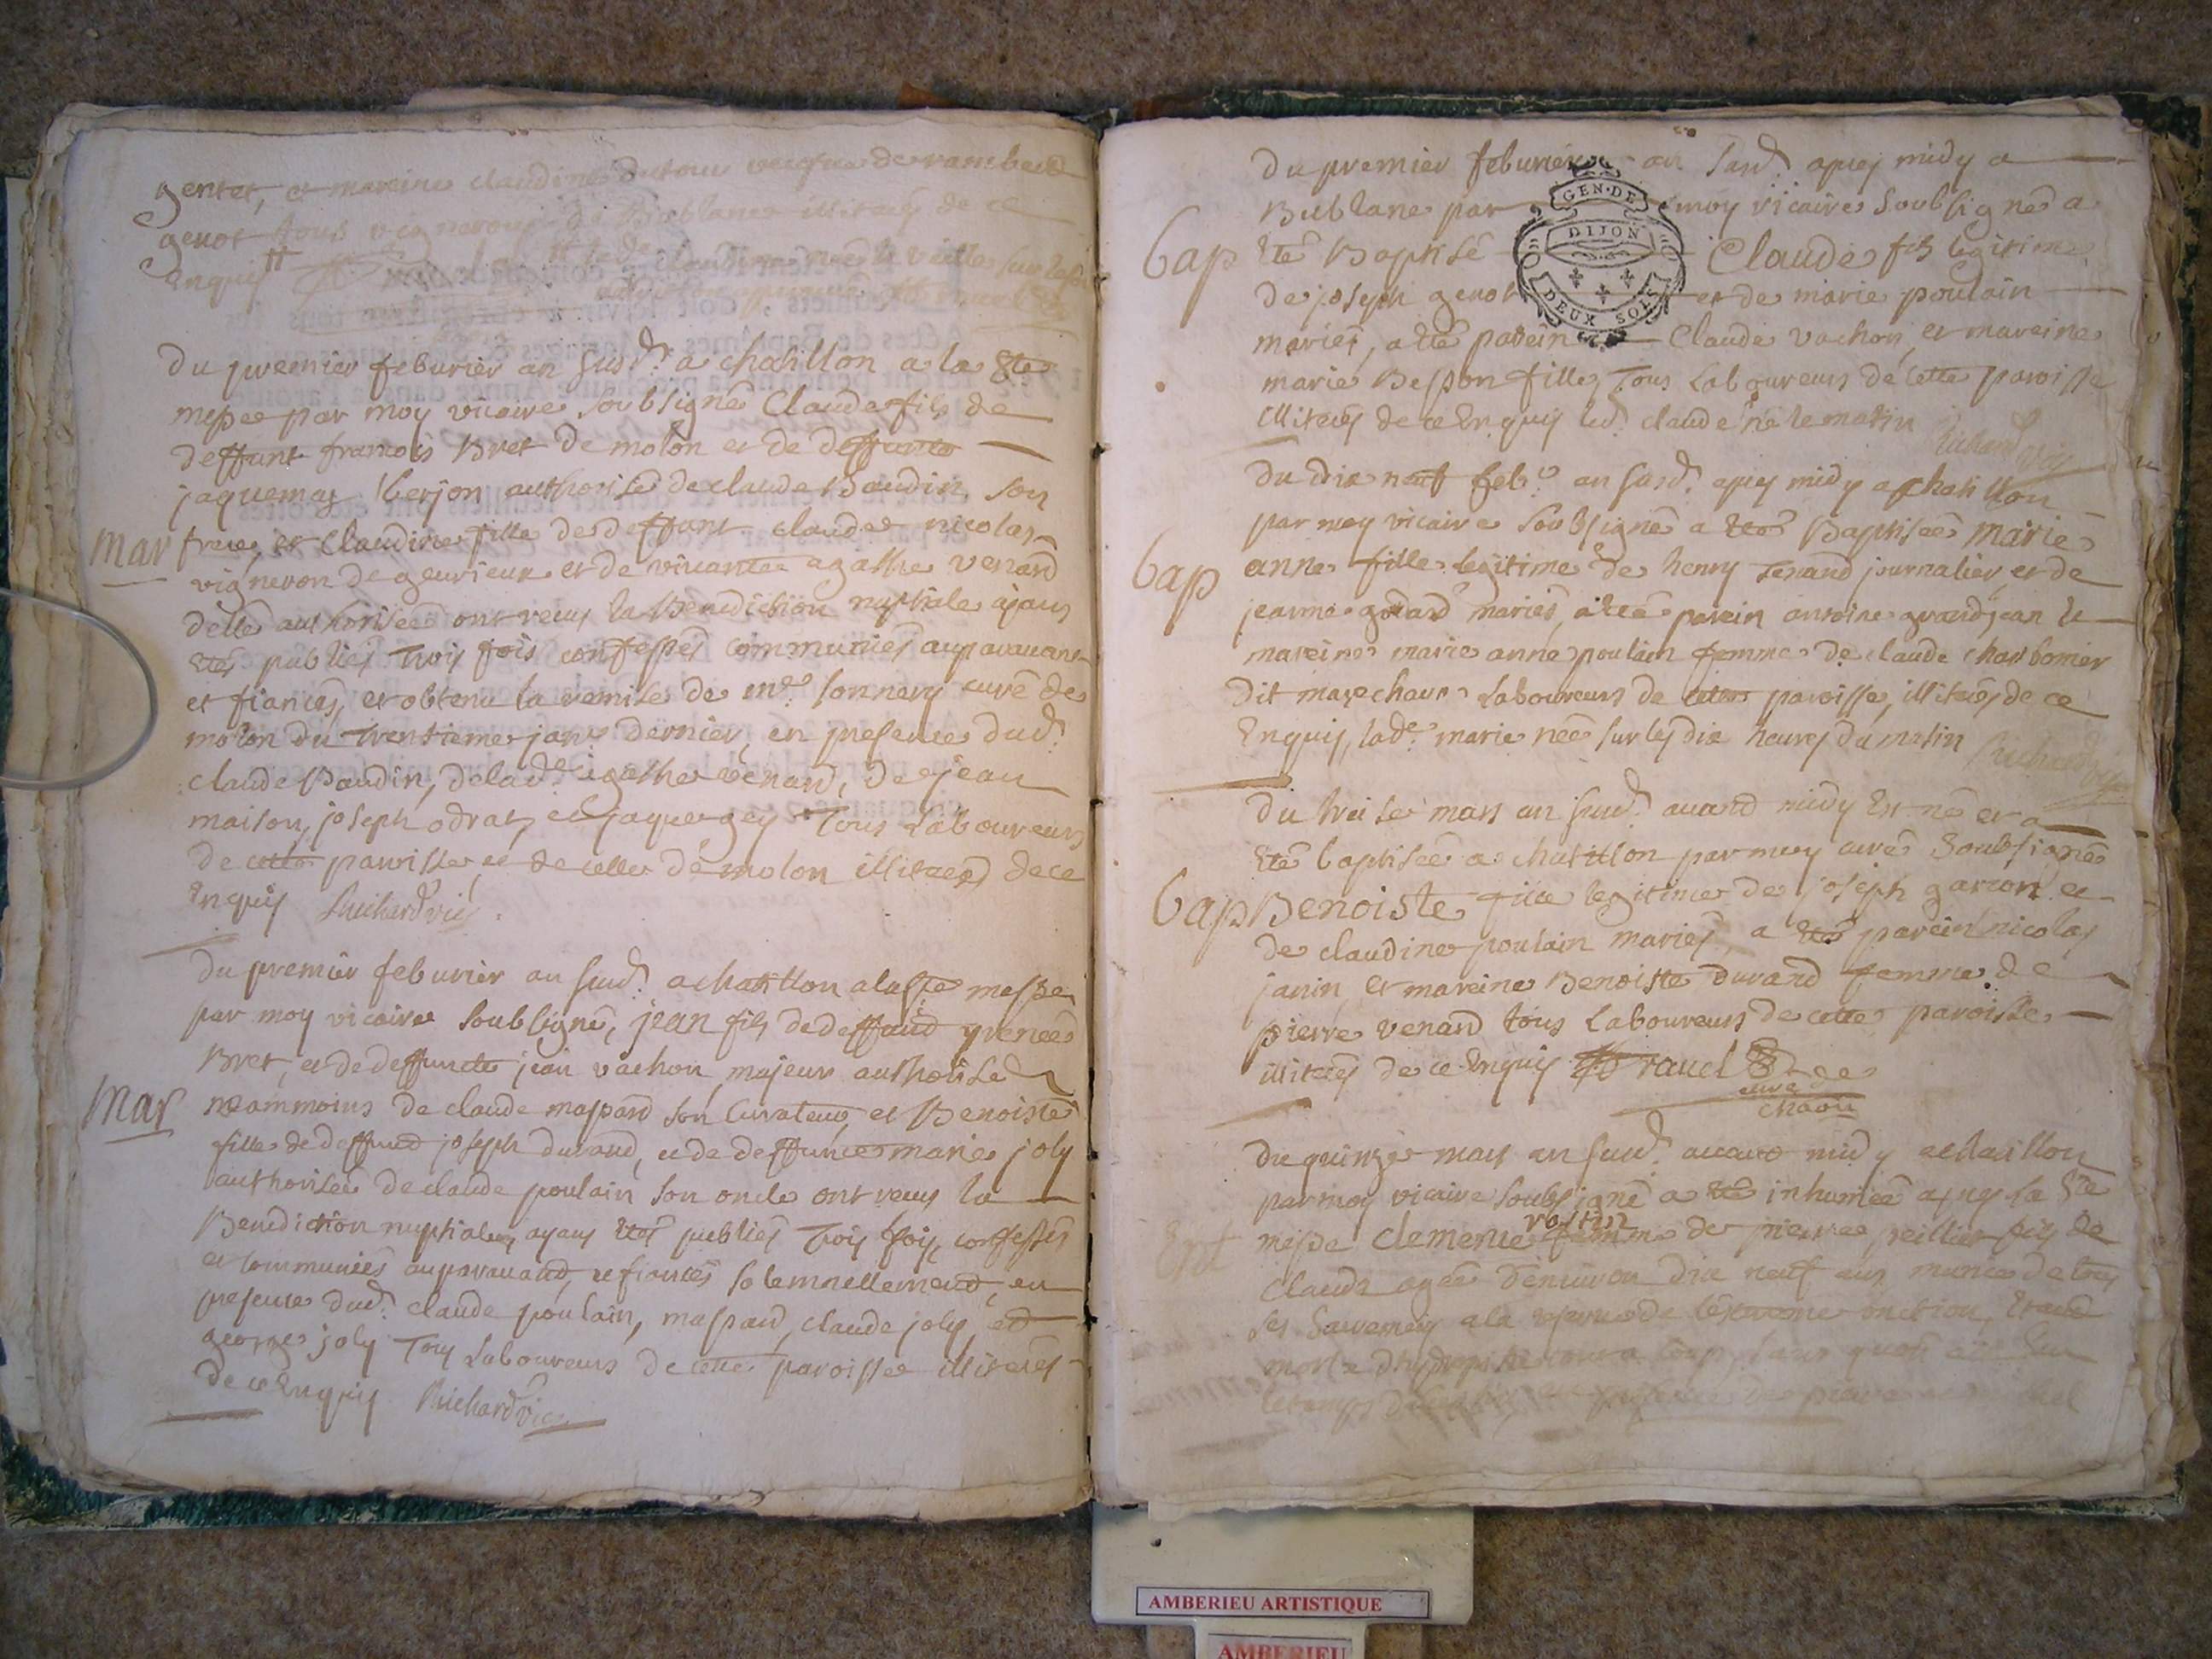 gentet, et mareine claudine dutour veufve de rambaud
genot tous vignerons de Bublane illiterés de ce
Enquis
Du premier feburier an susd. a chatillon a la ste
messe par moy vicaire soubsigné Claude fils de
deffunt francois Bret de molon et de deffunte
jaquemaz Berjon authorisé de claude Baudin, son
Mar
frere, et Claudine fille de deffunt claude nicolas
vigneron de gevrieux et de vivante agathe venard
delle authorisée ont receus la Benediction nuptiale ajans
Etés publiés Trois fois confessés communiés auparavant
et fiancés, et obtenu la remise de mre sonnery curé de
molon du Trentieme janr dernier, en presence dud.
claude Baudin, de lade agathe venard, de jean
maison, joseph odrat, et jaque gey Tous Laboureurs
de cette paroisse et de celle de molon illiterés de ce
Enquis Richard vic.
Du premier feburier an susd. a chatillon a la ste messe
par moy vicaire soubsigné, jean fils de deffund yrenee
Bret, et de deffuncte jean vachon, majeur authorisé
Mar
neammoins de claude maspard son Curateur, et Benoiste
fille de deffund joseph durand, et de deffunte marie joly
authorisée de claude poulain son oncle ont receus la
Benediction nuptiale, ayans Etés publiés Trois fois, confessés
et communiés auparavand, et fiancés solemnellemend, en
presence dud. claude poulain, maspard, claude joly, et
george joly Tous Laboureurs de cette paroisse illiterés
de ce Enquis Richard vic.
Du premier feburier an susd. apres midy a
Bublane par moy vicaire soubsigné a
Bap
Eté Baptisé Claude fils legitime
de joseph genot et de marie poulain
mariés, a été parein Claude vachon, et mareine
marie Besson fille, Tous Laboureurs de cette paroisse
illiterés de ce Enquis led. claude né le matin
Richard vic.
GEN. DE
DIJON
DEUX SOLS
Du dix neuf febr. an susd. apres midy a chatillon
par moy vicaire soubsigné a Eté Baptisée Marie
Bap
anne fille legitime de henry Tenand journalier, et de
jeanne godard mariés, a été parein antoine grandjean et
mareine marie anne poulain femme de claude charbonier
dit marechaux Laboureurs de cette paroisse, illiterés de ce
Enquis, lade marie née sur les dix heures du matin Richard vic.
Du treise mars an susd. avand midy Est né et a
Eté baptisée a chatillon par moy curé Soubsigné
Bap
Benoiste fille legitime de joseph garcon et
de claudine poulain mariés, a Eté parein nicolas
janin, et mareine Benoiste durand femme de
pierre venard tous Laboureurs de cette paroisse
illiterés de ce Enquis
curé
Du quinze mars an susd. avand midy a chatillon
par moy vicaire soubsigné a Eté inhumée apres la Ste
Ent
messe Clemence rostin femme de pierre peillier fils de
Claude agée d'environ dix neuf ans munie de tous
les Sacremens a la reserve de l'extreme onction, Etand
morte d'hydropisie